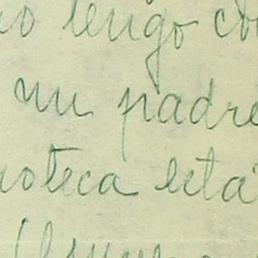 no tengo co
mi padre
oteca está